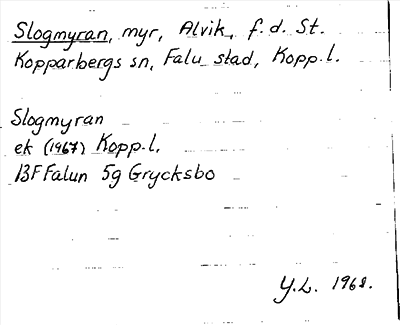 Slogmyran, myr, Alvik, f.d. St.
Kopparbergs sn, Falu stad, Kopp.l.
Slogmyran
ek (1967) Kopp.l.
13F Falun 5g Grycksbo
Y.L. 1968.